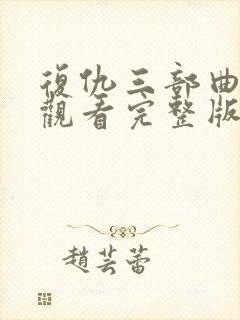 復仇三部曲
觀看完整版
趙芸蕾